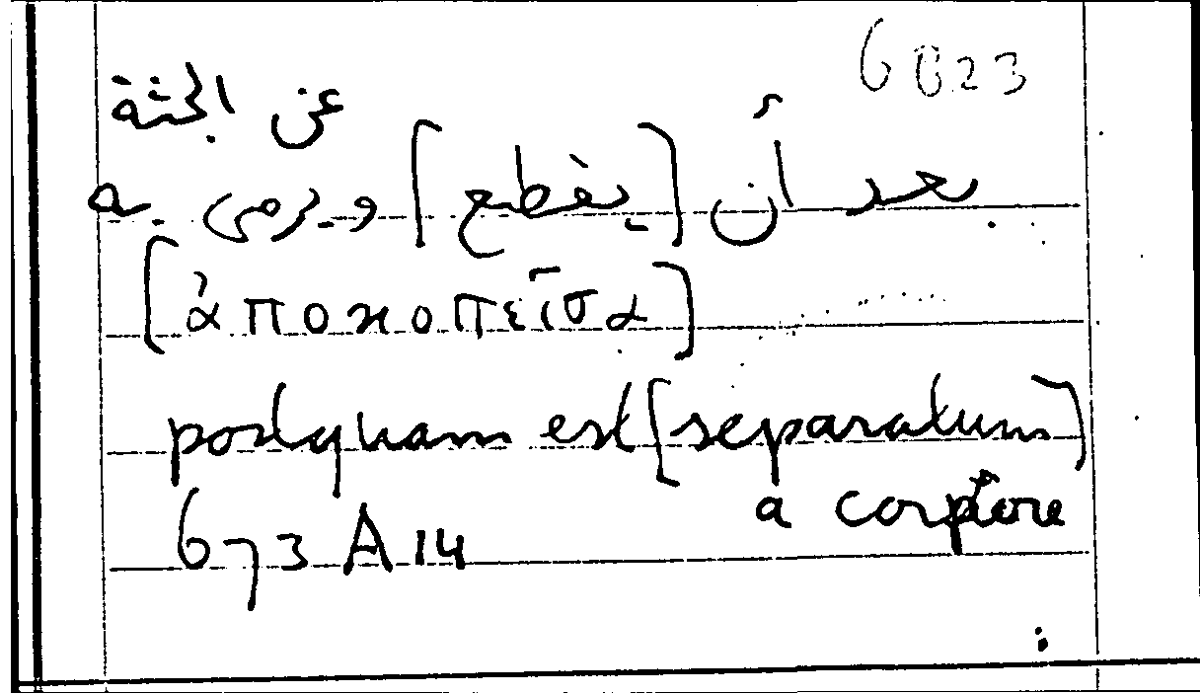 6 B 23
عن الجثة
بعد أن [يقطع] ويرمى به
[ἀποκοπεῖσα]
postquam est [separatum]
a corpore
673 A 14